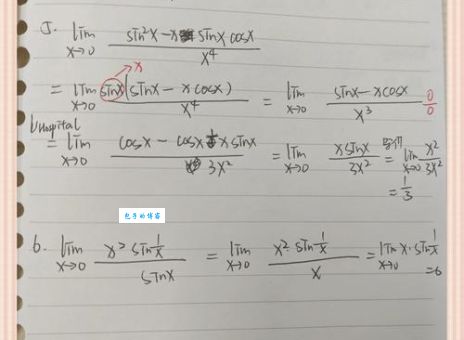 5. lim x→0 (sin²x - x sinx cosx) / x⁴
= lim x→0 sinx (sinx - x cosx) / x⁴ = lim x→0 (sinx - x cosx) / x³ 0/0
x
L'Hospital
= lim x→0 (cosx - cosx + x sinx) / 3x² = lim x→0 x sinx / 3x² = lim x→0 x² / 3x²
= 1/3
包子的博客
6. lim x→0 x² sin 1/x / sinx = lim x→0 x² · sin 1/x / x = lim x→0 x · sin 1/x
=0